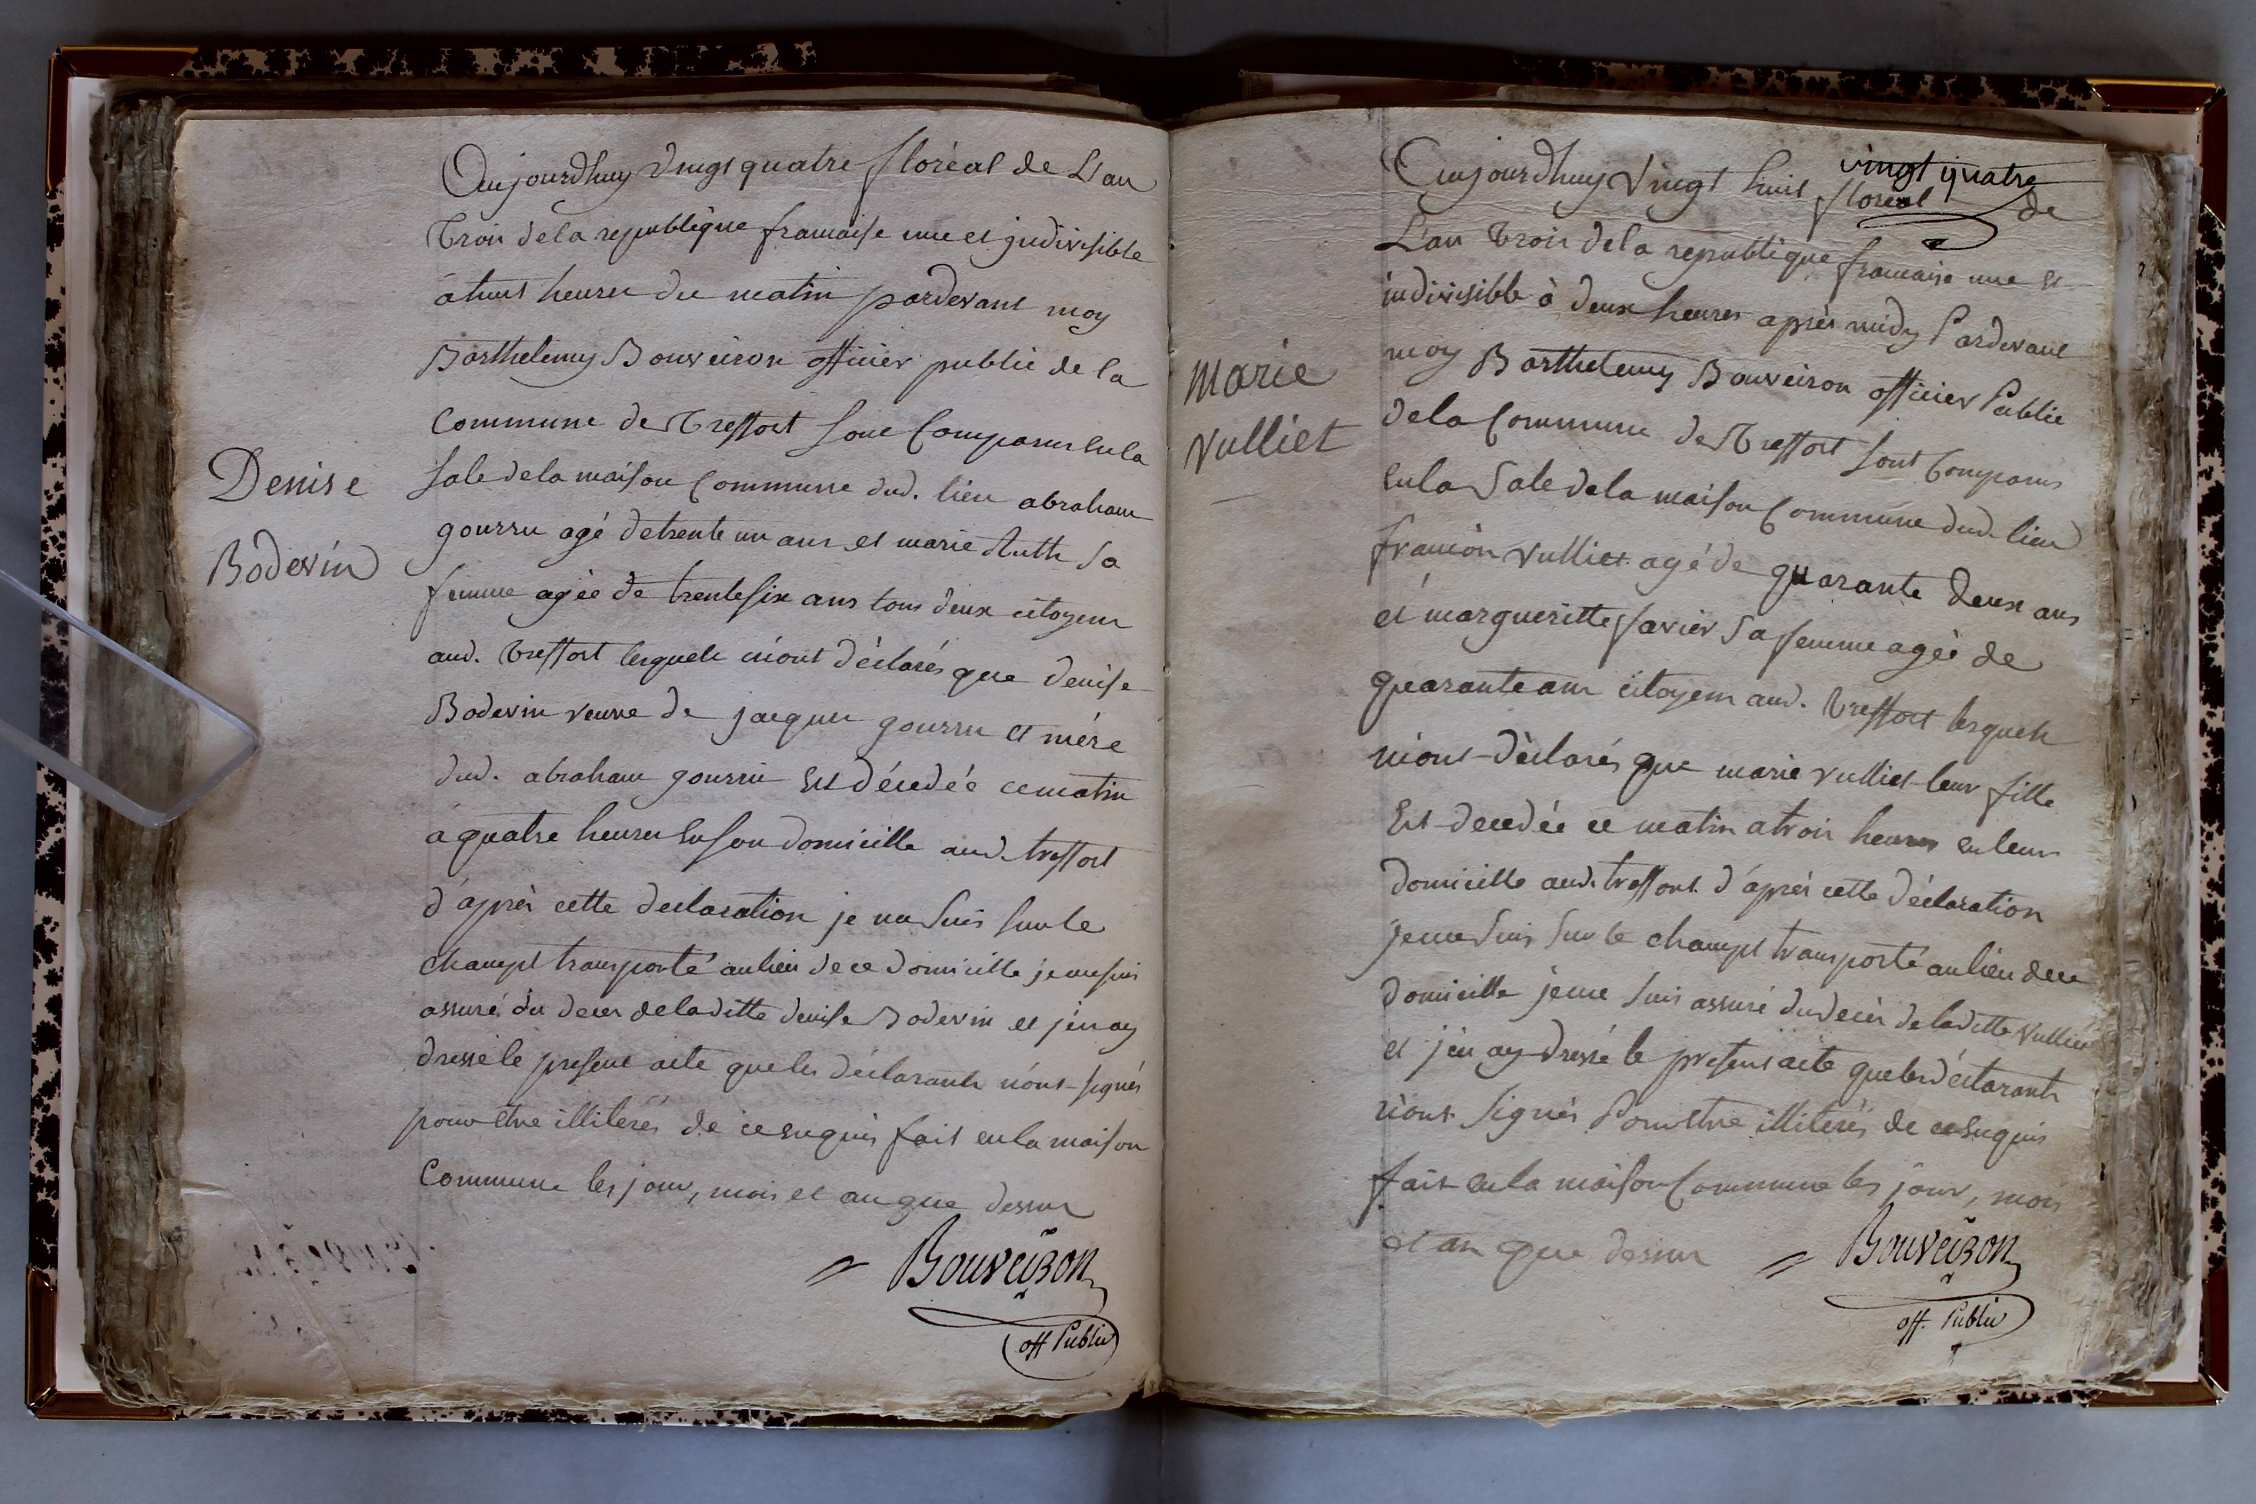 Aujourdhuy vingt quatre floréal de L'an
trois de la republique francaise une et jndivisible
à huit heures du matin pardevant moy
Barthelemy Bouveiron officier public de la
Commune de Treffort sont Comparus en la
sale de la maison Commune dud. lieu abraham
gourru agé de trente un ans et marie Ruth sa
femme agée de trente six ans tous deux citoyens
aud. treffort lesquels m'ont déclarés que denise
Bodevin veuve de jacques gourru et mére
dud. abraham gourru Est décedée ce matin
a quatre heures en son domicille aud. treffort
d'après cette declaration je me suis sur le
champt transporté au lieu de ce domicille je me suis
assuré du deces de laditte denise Bodevin et j'en ay
dressé le present acte que les déclarants n'ont signés
pour être illiterés de ce enquis fait en la maison
Commune les jour, mois et an que dessus
Bouveiron
off Public
Denise
Bodevin
vingt quatre
Aujourdhuy vingt huit floreal de
L'an trois de la republique francaise une et
indivisible à deux heures après midy Pardevant
moy Barthelemy Bouveiron officier Public
de la Commune de Treffort sont Comparus
en la Sale de la maison Commune dud. lieu
francois vulliet agé de quarante deux ans
et margueritte favier sa femme agée de
quarante ans citoyens aud. treffort lesquels
m'ont déclarés que marie vulliet leur fille
Est decedée ce matin a trois heures en leur
domicille aud. treffort d'après cette déclaration
je me suis sur le champt transporté au lieu de ce
domicille je me suis assuré du decès de laditte vulliet
et j'en ay dressé le present acte que les déclarants
n'ont signés Pour être illiterés de ce enquis
fait en la maison Commune les jour, mois
et an que dessus
Bouveiron
off. Public
marie
vulliet